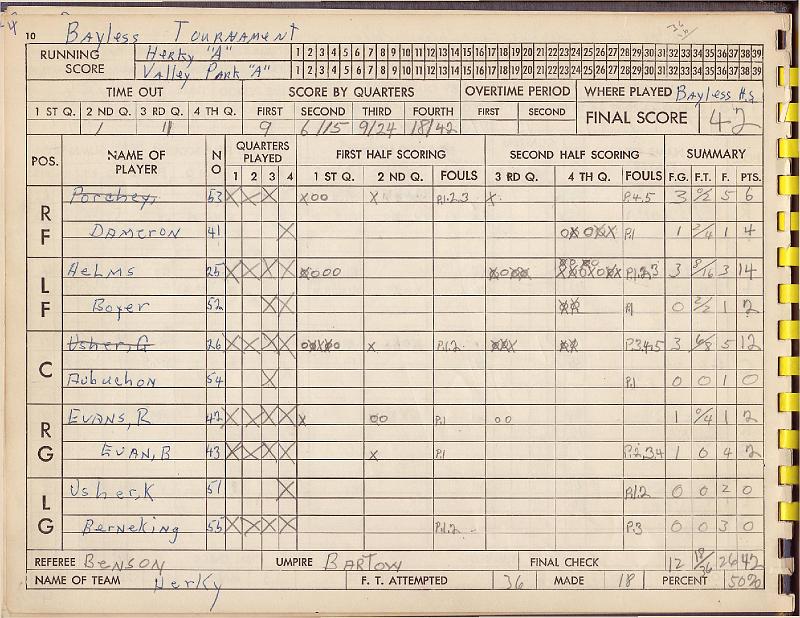 10 Bayless Tournament
RUNNING SCORE
Herky "A" 1 2 3 4 5 6 7 8 9 10 11 12 13 14 15 16 17 18 19 20 21 22 23 24 25 26 27 28 29 30 31 32 33 34 35 36 37 38 39
Valley Park "A" 1 2 3 4 5 6 7 8 9 10 11 12 13 14 15 16 17 18 19 20 21 22 23 24 25 26 27 28 29 30 31 32 33 34 35 36 37 38 39
TIME OUT SCORE BY QUARTERS OVERTIME PERIOD WHERE PLAYED Bayless H.S
1 ST Q. 2 ND Q. 3 RD Q. 4 TH Q. FIRST SECOND THIRD FOURTH FIRST SECOND FINAL SCORE 42
1 11 9 6/15 9/24 18/42
POS. NAME OF PLAYER NO QUARTERS PLAYED FIRST HALF SCORING SECOND HALF SCORING SUMMARY
1 2 3 4 1 ST Q. 2 ND Q. FOULS 3 RD Q. 4 TH Q. FOULS F.G. F.T. F. PTS.
RF Porchey, 53 X X X X00 X P.1.2.3 X P.4.5 3 0/2 5 6
Dameron 41 X P.1 1 2/4 1 4
LF Helms 25 X X X X P.1.2.3 3 8/16 3 14
Boyer 52 X X P.1 0 2/2 1 2
C Usher, G 26 X X X X X P.1.2 P.3.4.5 3 6/8 5 12
Aubuchon 54 X P.1 0 0 1 0
RG Evans, R 42 X X X X X 00 P.1 00 1 0/4 1 2
Evan, B 43 X X X X X P.1 P.2.3.4 1 0 4 2
LG Usher, K 51 X P.1.2 0 0 2 0
Berneking 55 X X X X P.1.2 P.3 0 0 3 0
REFEREE Benson UMPIRE Bartow FINAL CHECK 12 18/36 26 42
NAME OF TEAM Herky F. T. ATTEMPTED 36 MADE 18 PERCENT 50%